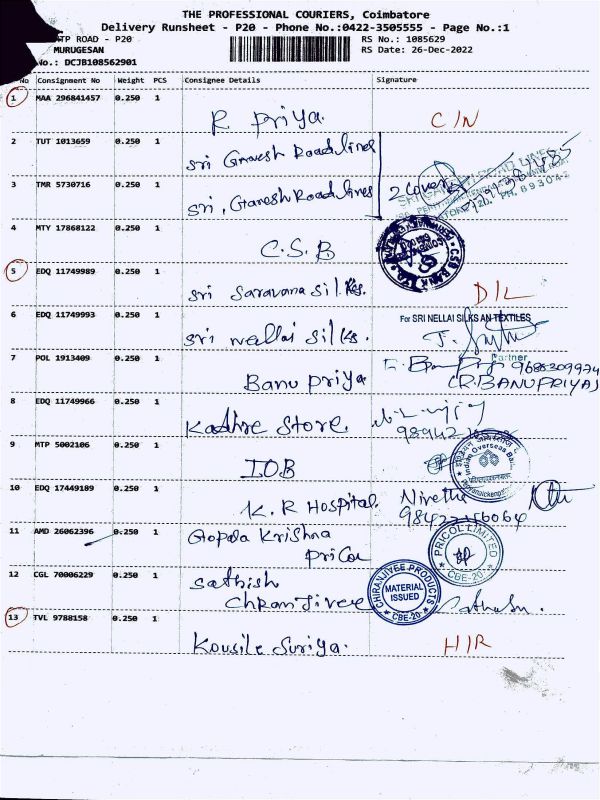 THE PROFESSIONAL COURIERS, Coimbatore
Delivery Runsheet - P20 - Phone No.:0422-3505555 - Page No.:1
TP ROAD - P20
RS No.: 1085629
MURUGESAN
RS Date: 26-Dec-2022
No.: DCJB108562901
No Consignment No Weight PCS Consignee Details Signature
1 MAA 296841457 0.250 1 R Priya. C/N
2 TUT 1013659 0.250 1 Sri Ganesh Roadlines
3 TMR 5730716 0.250 1 Sri, Ganesh Roadlines 2 Cover
4 MTY 17868122 0.250 1 C.S.B
CSB BANK LTD.
5 EDQ 11749989 0.250 1 Sri Saravana Silks. D/L
6 EDQ 11749993 0.250 1 Sri Nellai Silks.
For SRI NELLAI SILKS AN TEXTILES
Partner
7 POL 1913409 0.250 1 Banu Priya
(R.BANUPRIYA)
8 EDQ 11749966 0.250 1 Kadhre Store.
9 MTP 5002106 0.250 1 IOB
Indian Overseas Bank
10 EDQ 17449189 0.250 1 K.R Hospital. Nivetha
11 AMD 26062396 0.250 1 Gopala Krishna
Pricol
PRICOL LIMITED
CBE-20
12 CGL 70006229 0.250 1 Sathish
Chiranjivee
CHIRANJIVEE PRODUCTS
MATERIAL
ISSUED
CBE-20
13 TVL 9788158 0.250 1 Kousile Suriya. H/R